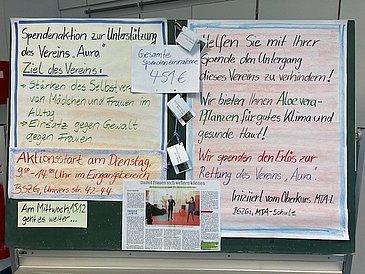 Spendenaktion zur Unterstützung
des Vereins „Aura“
Ziel des Vereins:
→ Stärken des Selbstver
von Mädchen und Frauen im
Alltag
→ Einsatz gegen Gewalt
gegen Frauen
Aktionsstart am Dienstag,
9⁰⁰-14⁰⁰ Uhr im Eingangsbereich
BSZG, Univers.str. 42-44
Am Mittwoch 15.12
geht es weiter...
Gesamte
Spendeneinnahme
451€
Helfen Sie mit Ihrer
Spende den Untergang
dieses Vereins zu verhindern!
Wir bieten Ihnen Aloe vera-
Pflanzen für gutes Klima und
gesunde Haut!
Wir spenden den Erlös zur
Rettung des Vereins „Aura“.
Iniziiert vom Oberkurs MTA-L
BSZG, MTA-Schule
Damit Frauen sich wehren können